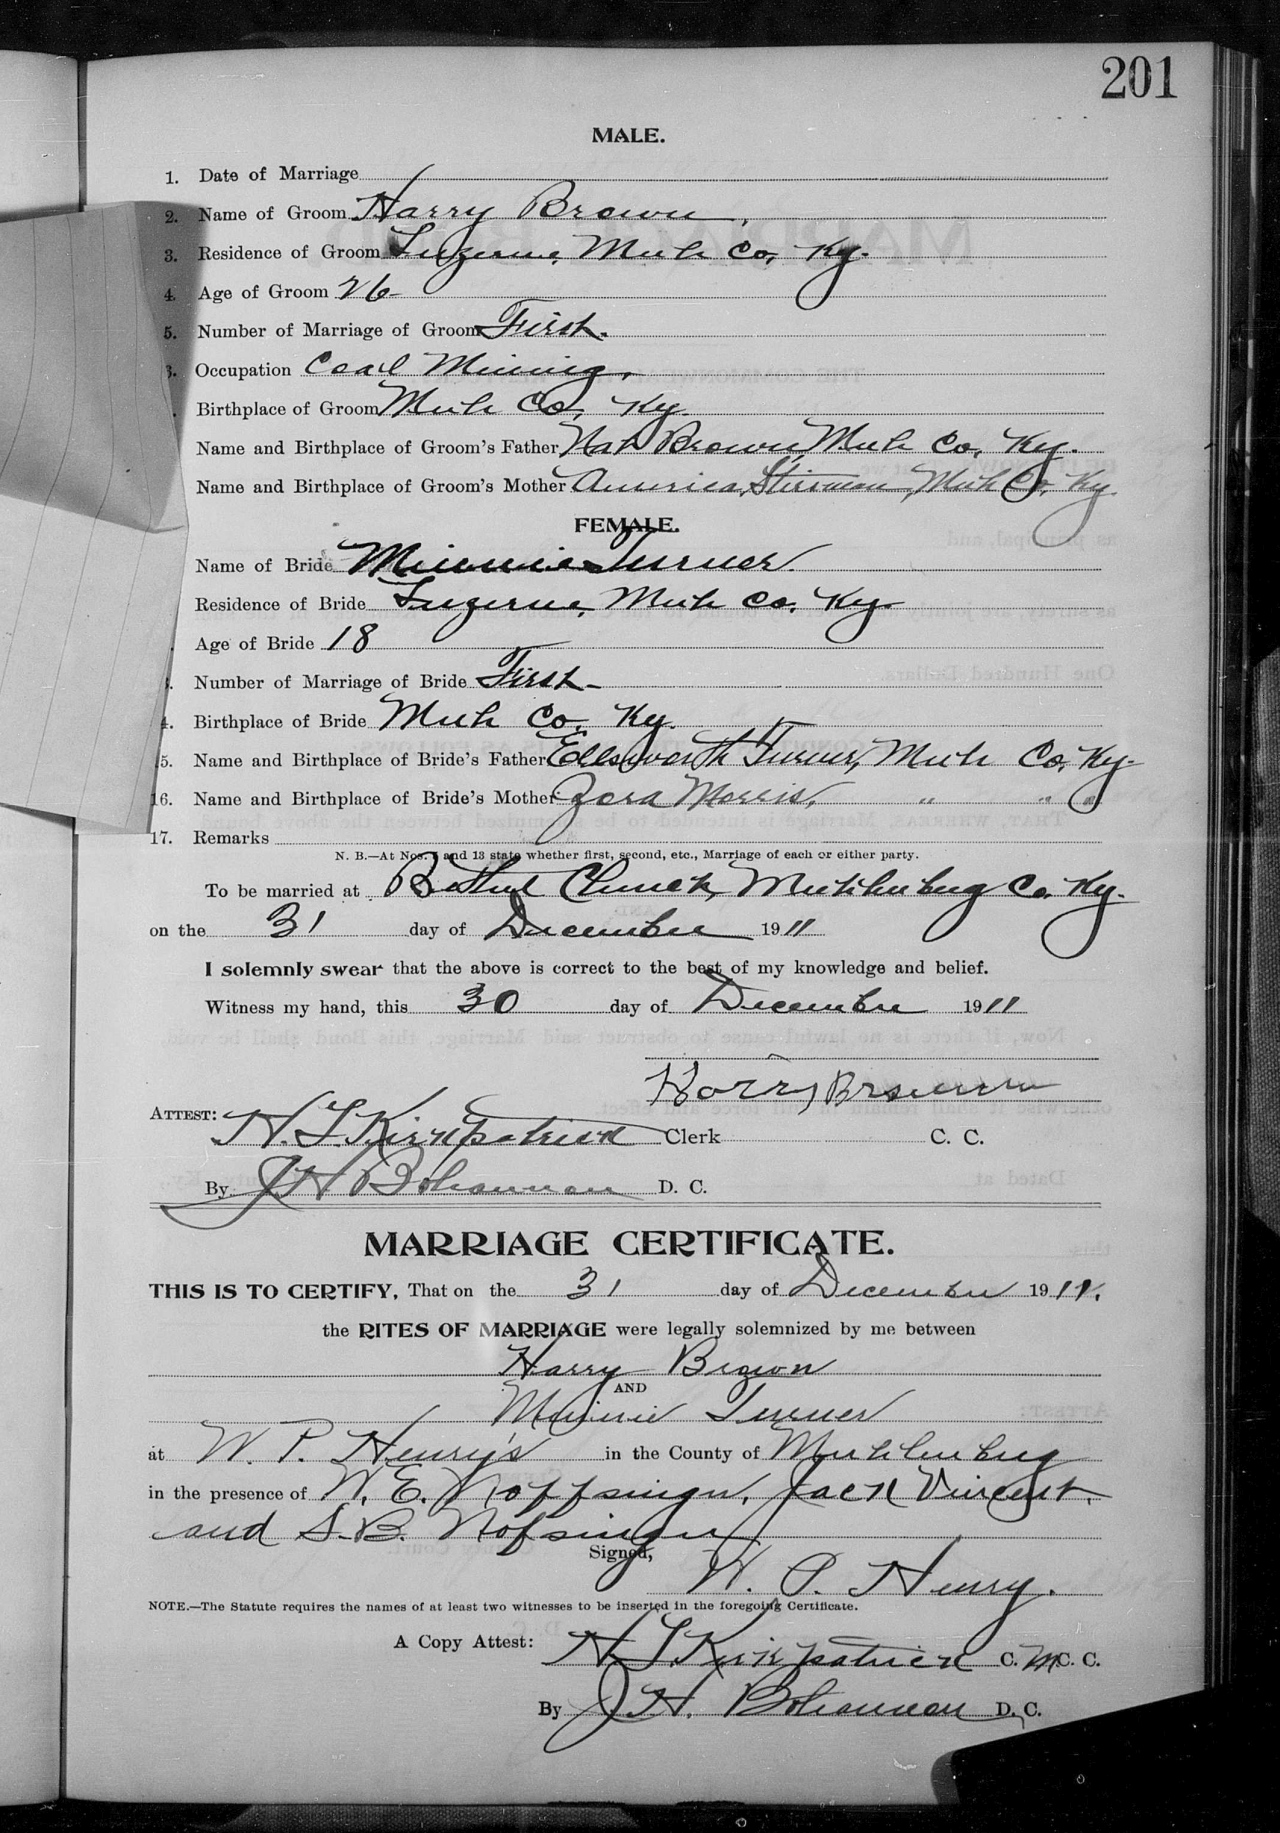 201
MALE.
1. Date of Marriage
2. Name of Groom Harry Brown
3. Residence of Groom Luzerne, Muh Co, Ky.
4. Age of Groom 26
5. Number of Marriage of Groom First.
Occupation Coal Mining.
Birthplace of Groom Muh Co, Ky.
Name and Birthplace of Groom's Father Nat Brown, Muh Co, Ky.
Name and Birthplace of Groom's Mother America Stirman, Muh Co, Ky.
FEMALE.
Name of Bride Minnie Turner
Residence of Bride Luzerne, Muh Co, Ky.
Age of Bride 18
Number of Marriage of Bride First
4. Birthplace of Bride Muh Co, Ky.
15. Name and Birthplace of Bride's Father Ellsworth Turner, Muh Co, Ky.
16. Name and Birthplace of Bride's Mother Zora Morris, " " "
17. Remarks
N. B.—At Nos. 5 and 13 state whether first, second, etc., Marriage of each or either party.
To be married at Bethel Church, Muhlenberg Co. Ky.
on the 31 day of December 1911
I solemnly swear that the above is correct to the best of my knowledge and belief.
Witness my hand, this 30 day of December 1911
Harry Brown
ATTEST: H. L. Kirkpatrick Clerk C. C.
By J H Bohannan D. C.
MARRIAGE CERTIFICATE.
THIS IS TO CERTIFY, That on the 31 day of December 1911.
the RITES OF MARRIAGE were legally solemnized by me between
Harry Brown
AND
Minnie Turner
at W. P. Henry's in the County of Muhlenberg
in the presence of W. E. Noffsinger, Jack Vincent,
and S. B. Nofsinger
Signed, W. P. Henry.
NOTE.—The Statute requires the names of at least two witnesses to be inserted in the foregoing Certificate.
A Copy Attest: H L Kirkpatrick C. M C. C.
By J H. Bohannan D. C.